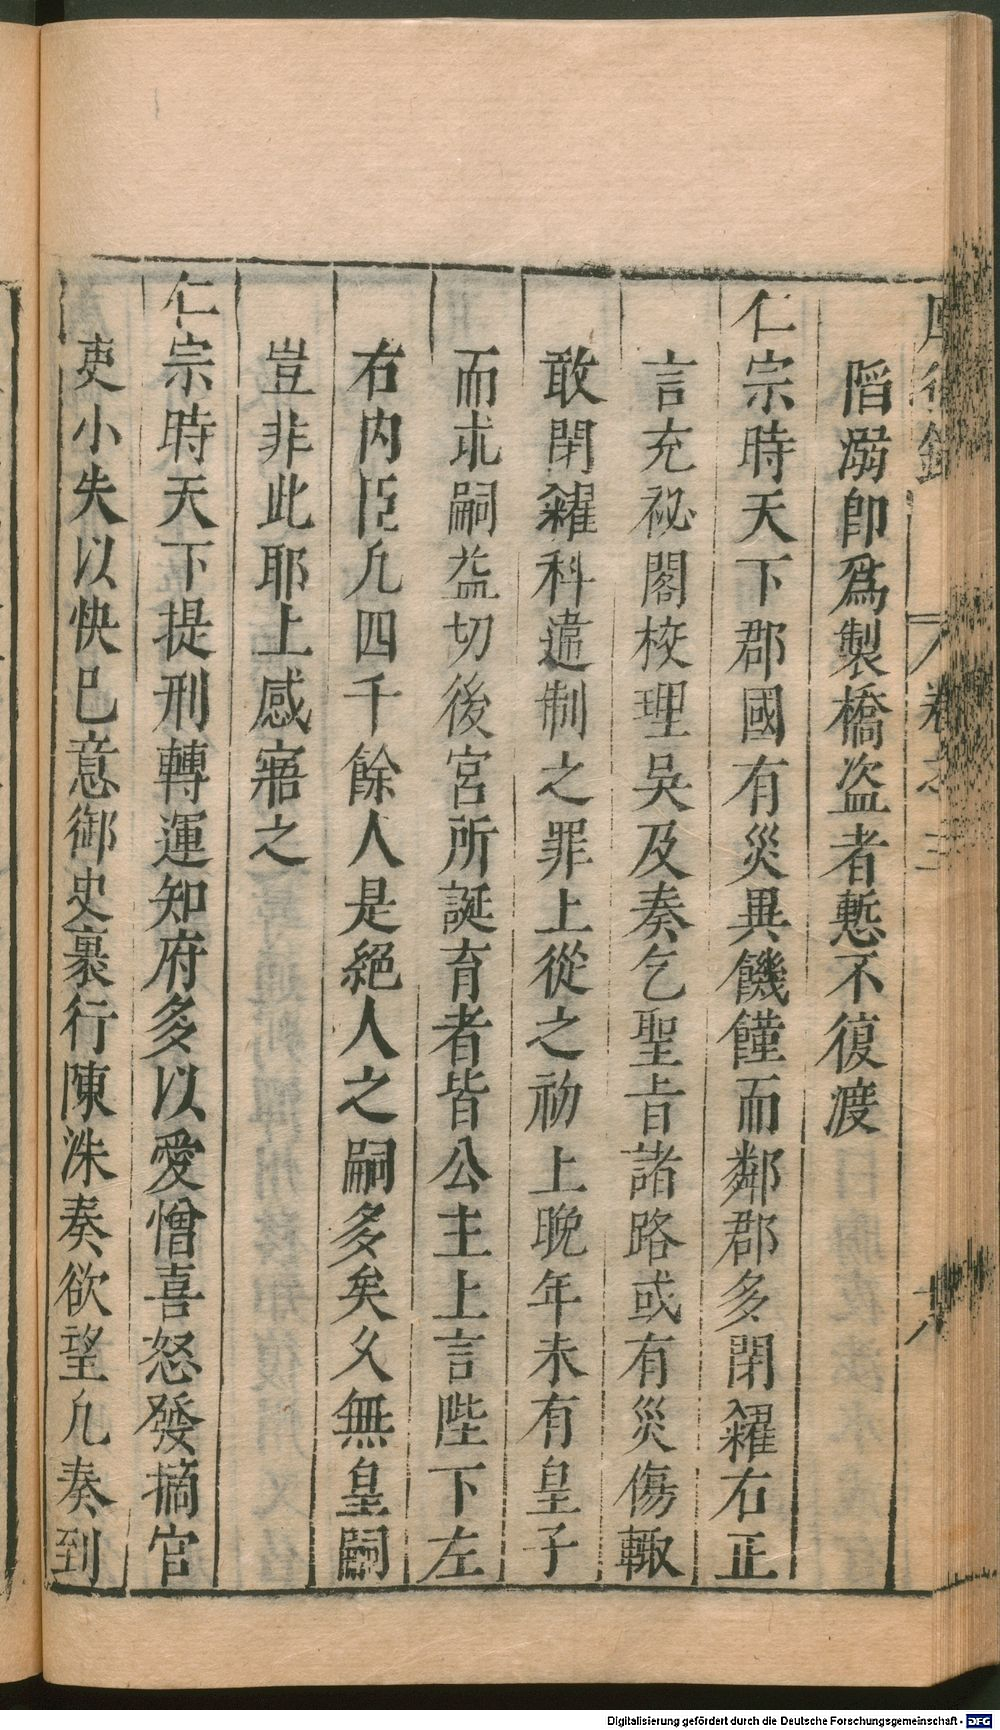 卷之三
陷溺卽爲製橋盗者慙不復渡
仁宗時天下郡國有災異饑饉而鄰郡多閉糴右正
言充祕閣校理吳及奏乞聖旨諸路或有災傷輙
敢閉糴科違制之罪上從之初上晚年未有皇子
而求嗣益切後宮所誕育者皆公主上言陛下左
右内臣凡四千餘人是絕人之嗣多矣久無皇嗣
豈非此耶上感寤之
仁宗時天下提刑轉運知府多以愛憎喜怒發摘官
吏小失以快巳意御史裏行陳洙奏欲望凢奏到
Digitalisierung gefördert durch die Deutsche Forschungsgemeinschaft - DFG